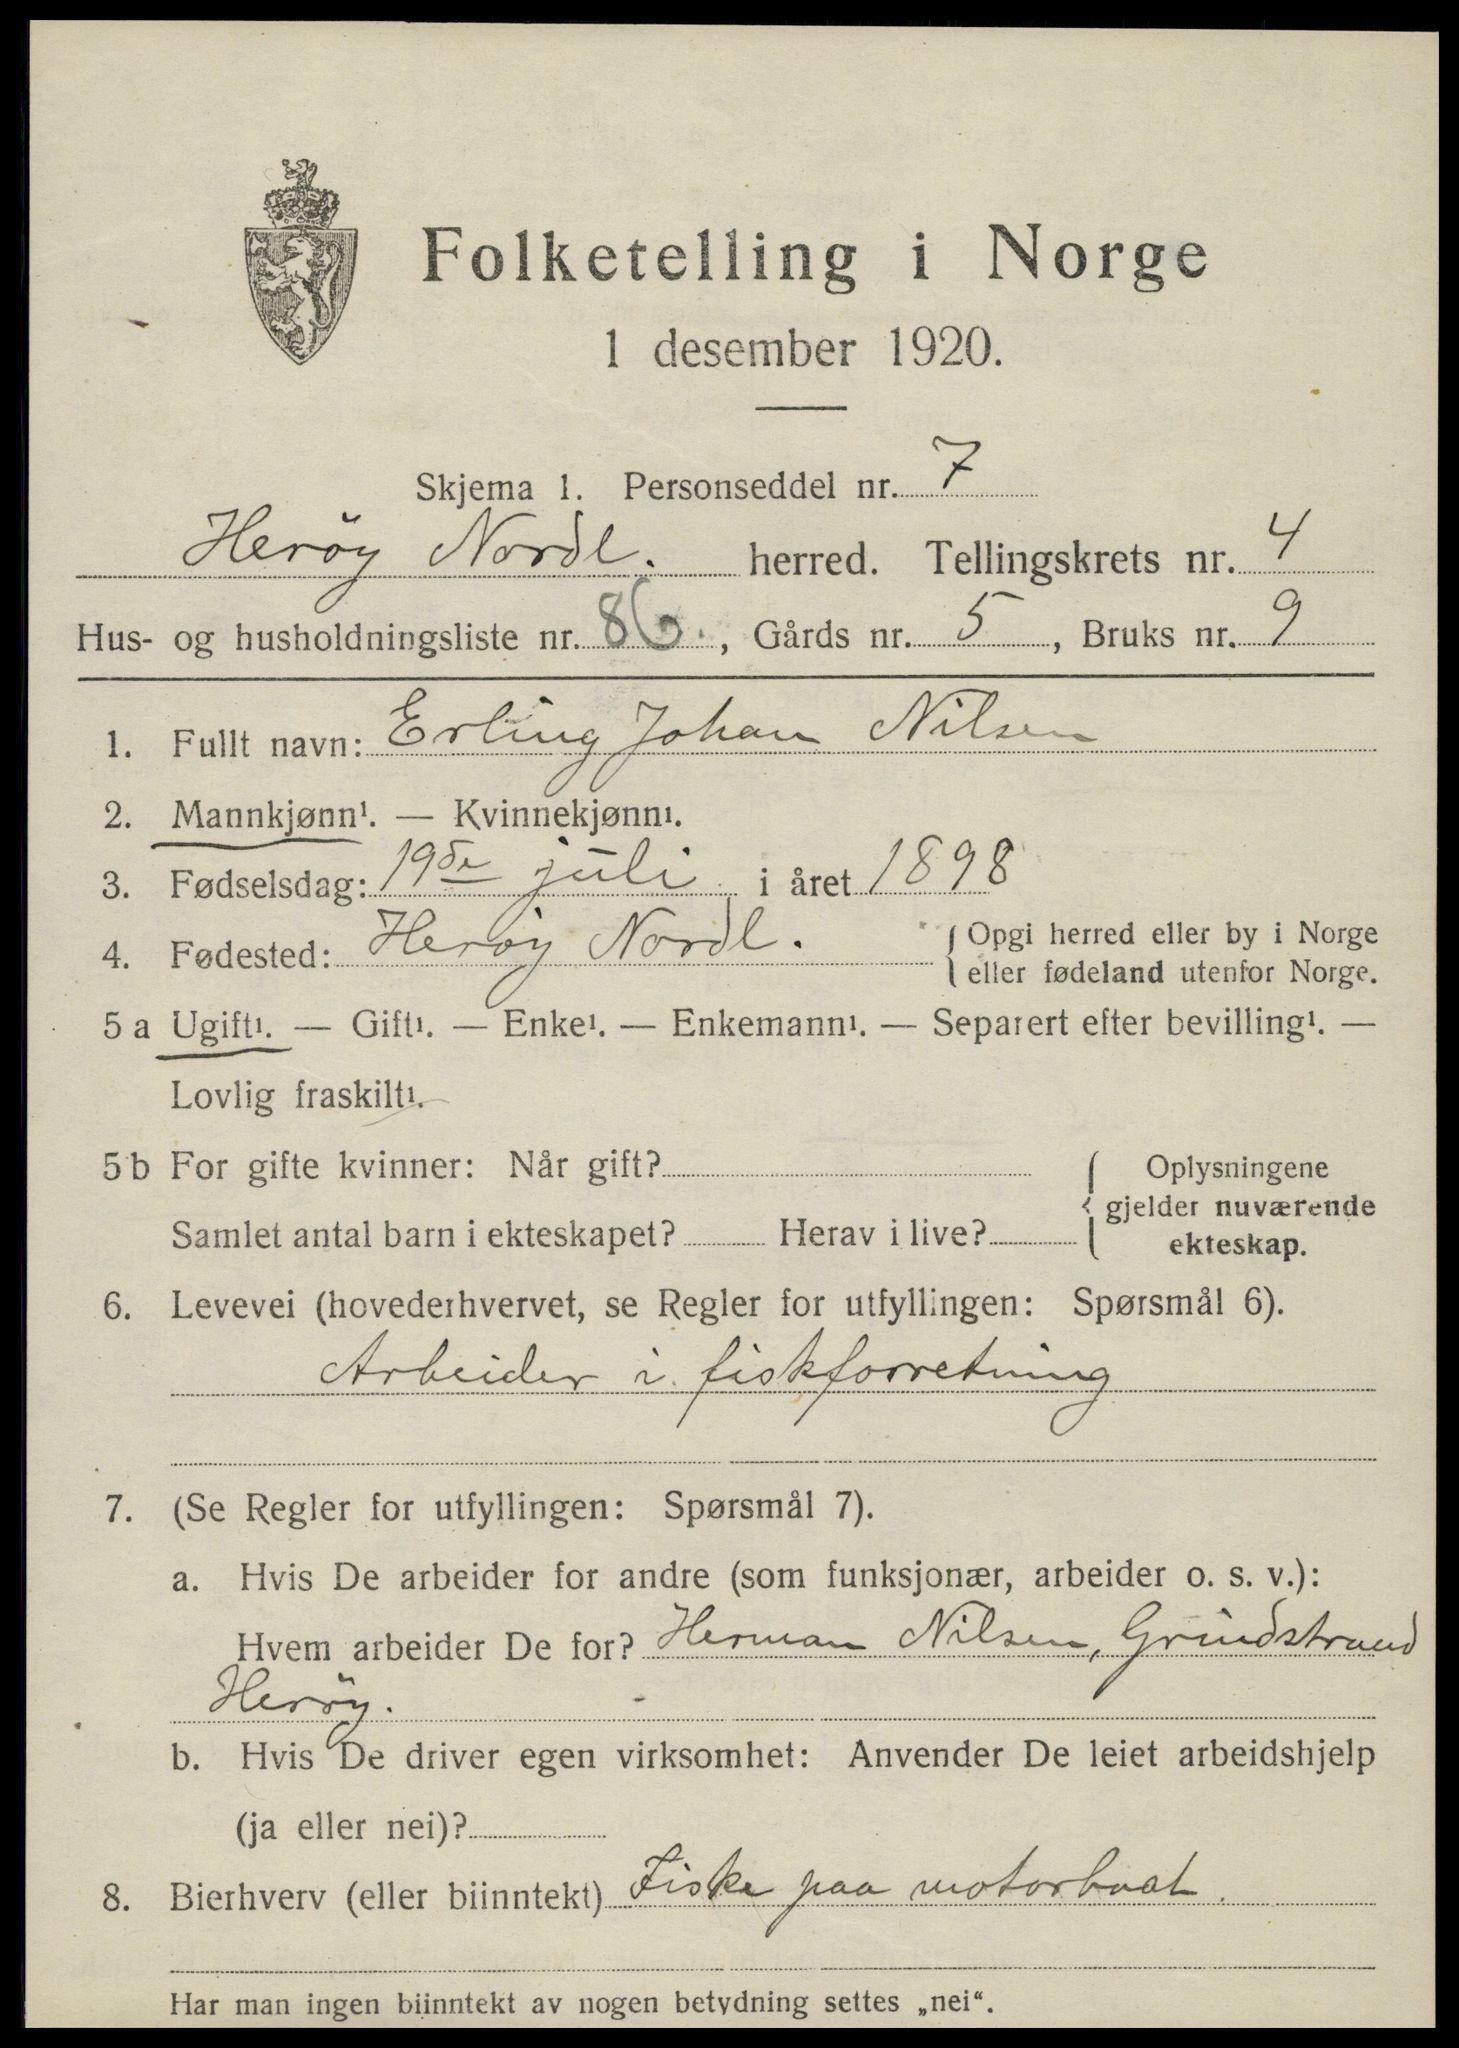 Folketelling i Norge
1 desember 1920.
Skjema 1. Personseddel nr. 7
Heröy Nordl. herred. Tellingskrets nr. 4
Hus- og husholdningsliste nr. 86., Gårds nr. 5, Bruks nr. 9
1. Fullt navn: Erling Johan Nilsen
2. Mannkjønn¹. — Kvinnekjønn¹.
3. Fødselsdag: 19de juli i året 1898
4. Fødested: Heröy Nordl. { Opgi herred eller by i Norge
eller fødeland utenfor Norge.
5 a Ugift¹. — Gift¹. — Enke¹. — Enkemann¹. — Separert efter bevilling¹. —
Lovlig fraskilt¹.
5 b For gifte kvinner: Når gift? { Oplysningene
gjelder nuværende
Samlet antal barn i ekteskapet? Herav i live? ekteskap.
6. Levevei (hovederhvervet, se Regler for utfyllingen: Spørsmål 6).
Arbeider i fiskforretning
7. (Se Regler for utfyllingen: Spørsmål 7).
a. Hvis De arbeider for andre (som funksjonær, arbeider o. s. v.):
Hvem arbeider De for? Herman Nilsen, Grindstrand
Heröy.
b. Hvis De driver egen virksomhet: Anvender De leiet arbeidshjelp
(ja eller nei)?
8. Bierhverv (eller biinntekt) Fiske paa motorbaat.
Har man ingen biinntekt av nogen betydning settes „nei“.